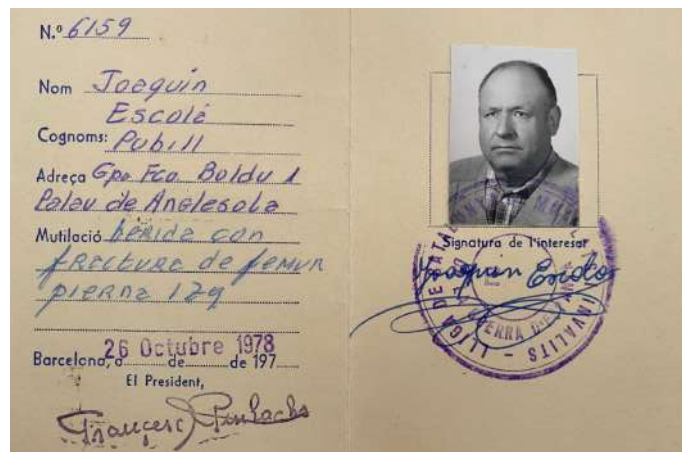 N.º 6159
Nom Joaquín
Escolé
Cognoms: Pubill
Adreça Gpo Fco Boldu 1
Palau de Anglesola
Mutilació herida con
fractura de femur
pierna izq
Barcelona, a 26 Octubre 1978 de de 197
El President,
Francesc
Signatura de l'interesat
Joaquin Escola
LLIGA DE INVALITS
GUERRA